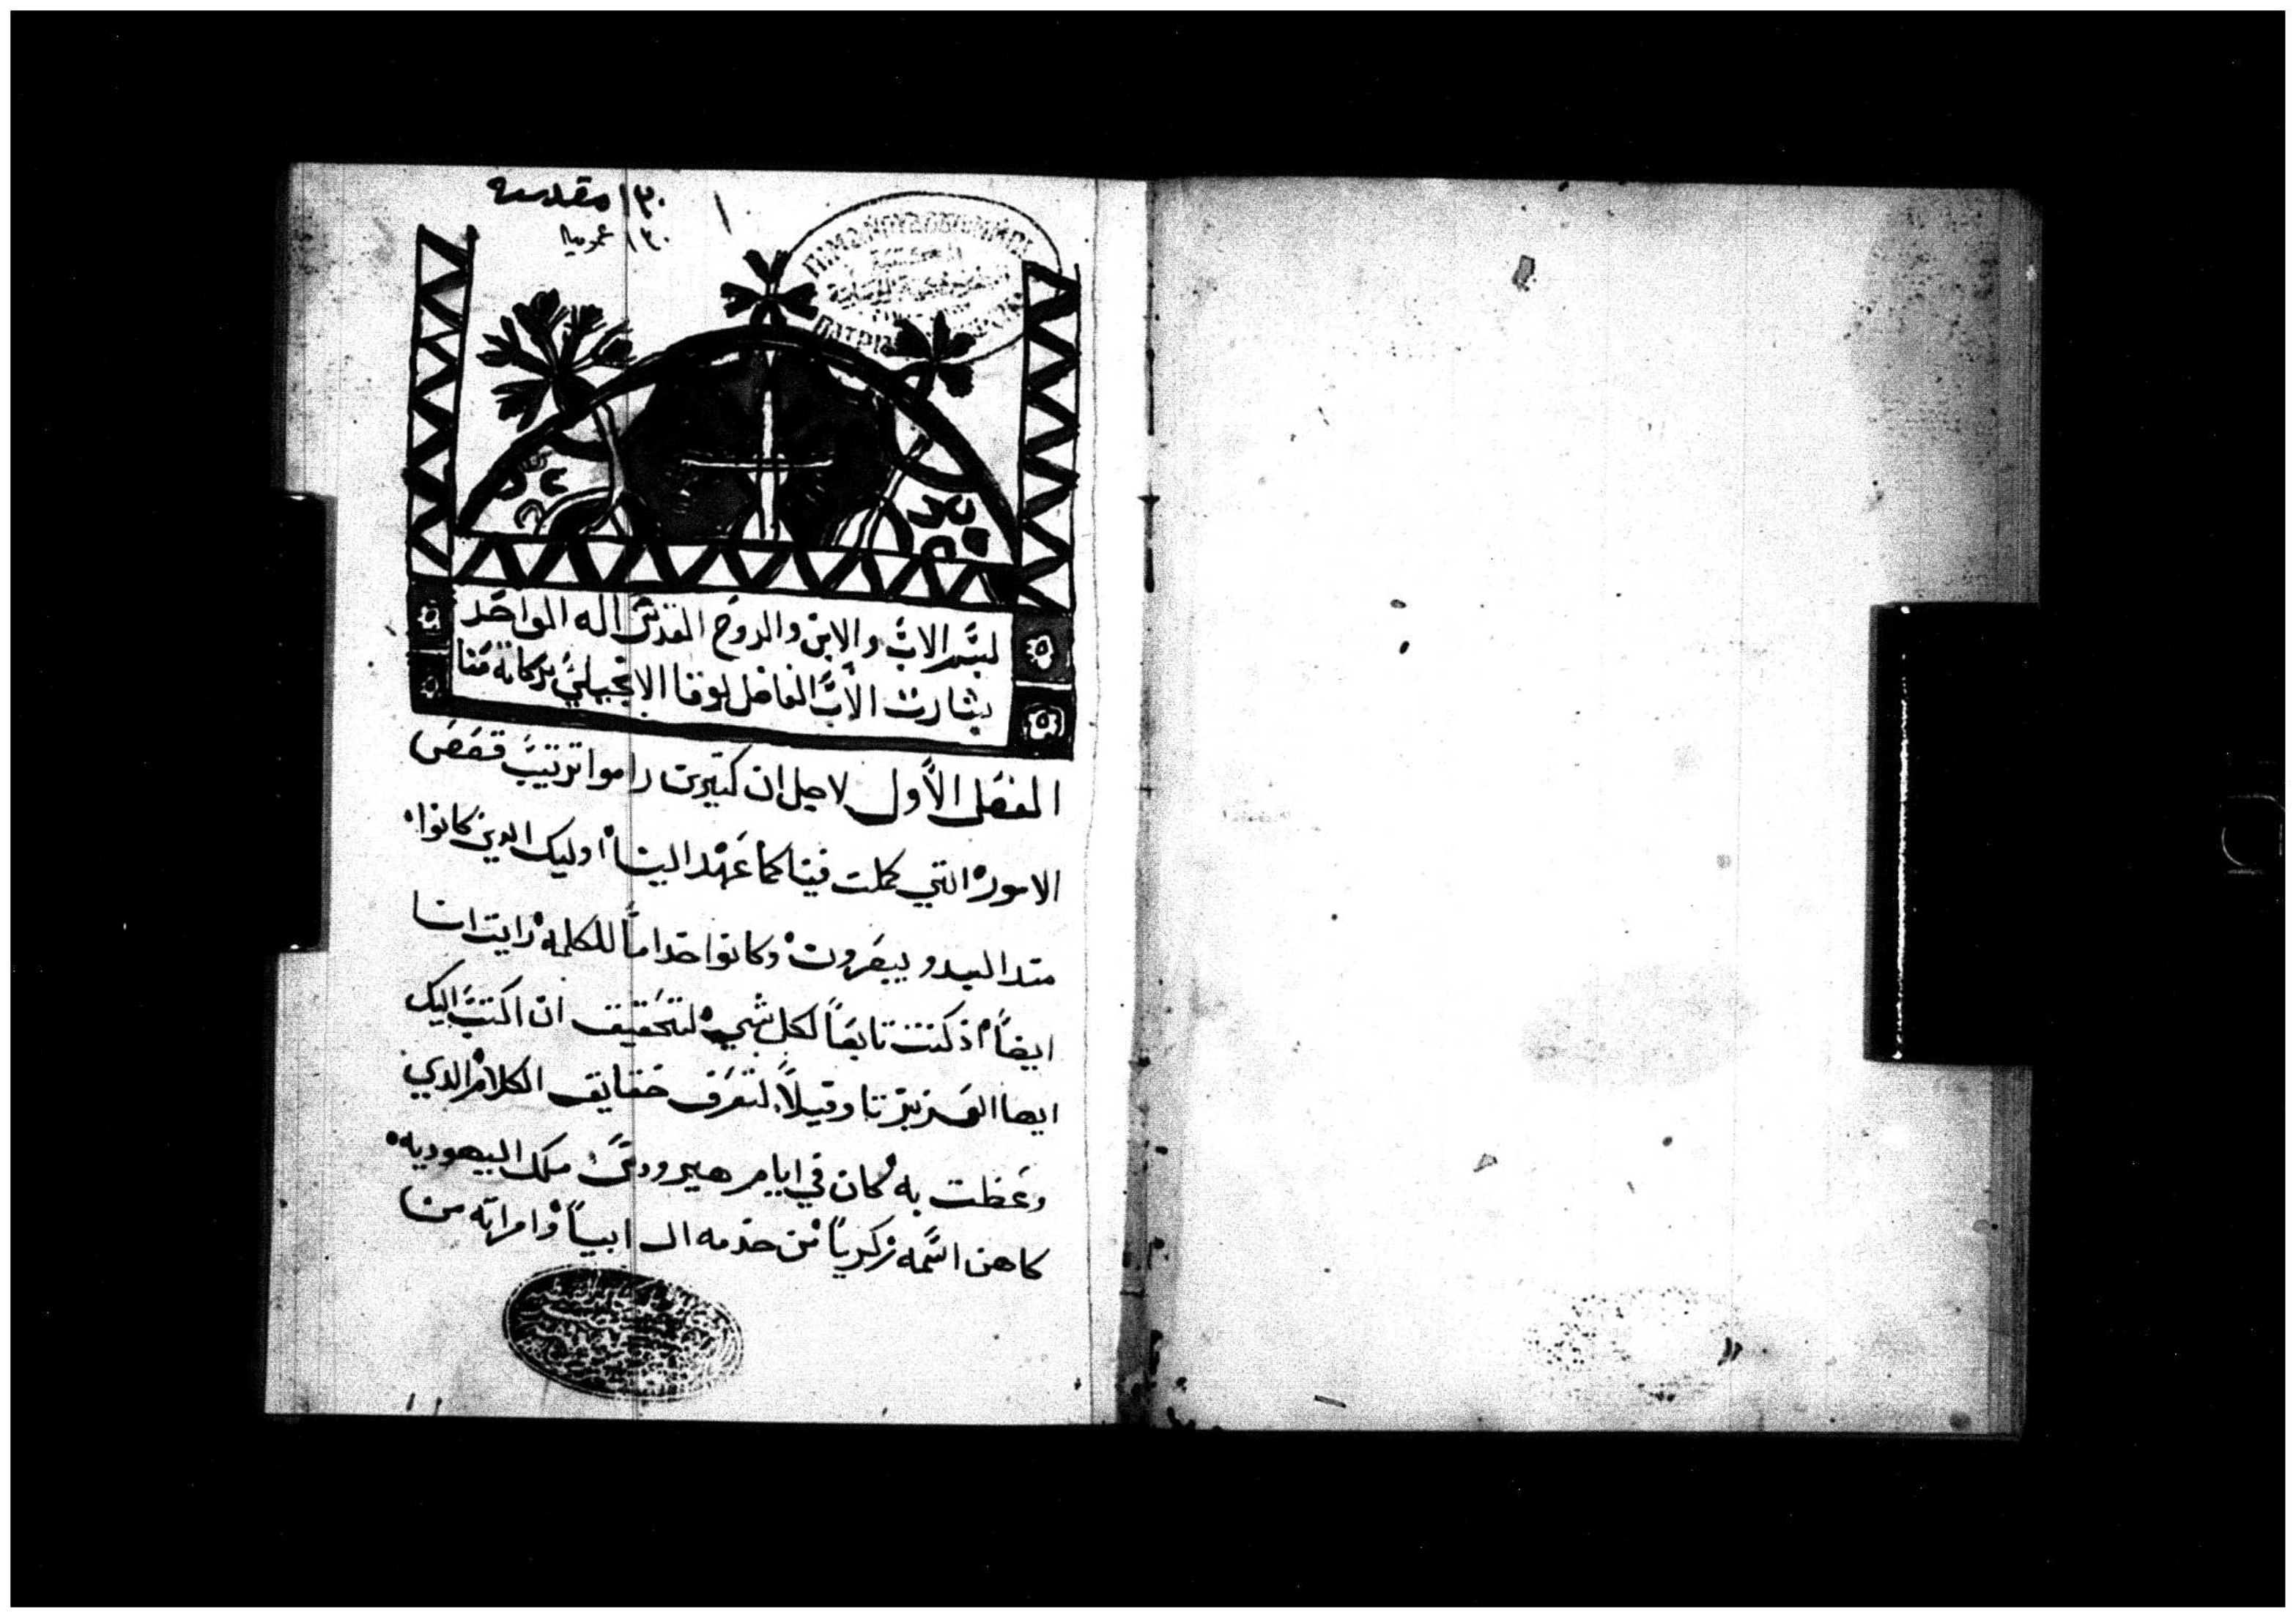 ١٣٠ مقدسه
١٣٠ عربيه
لبسم الاب والابن والروح القدس اله الواحد
بشارت الاب الفاضل لوقا الانجيلي بركاته معنا
الفصل الاول لاجل ان كتيرين راموا ترتيب قصص
الامور التي كملت فينا كما عهد الينا اوليك الدين كانوا
مند البدو يبصرون وكانوا خداماً للكلمه رايت انا
ايضاً اذ كنت تابعاً لكل شي لتحقيق ان اكتب اليك
ايها العزيز تاوفيلا لتعرف حقايق الكلام الدي
وعظت به كان في ايام هيرودس ملك اليهوديه
كاهن اسمه زكريا من خدمه ال ابيا وامراته من